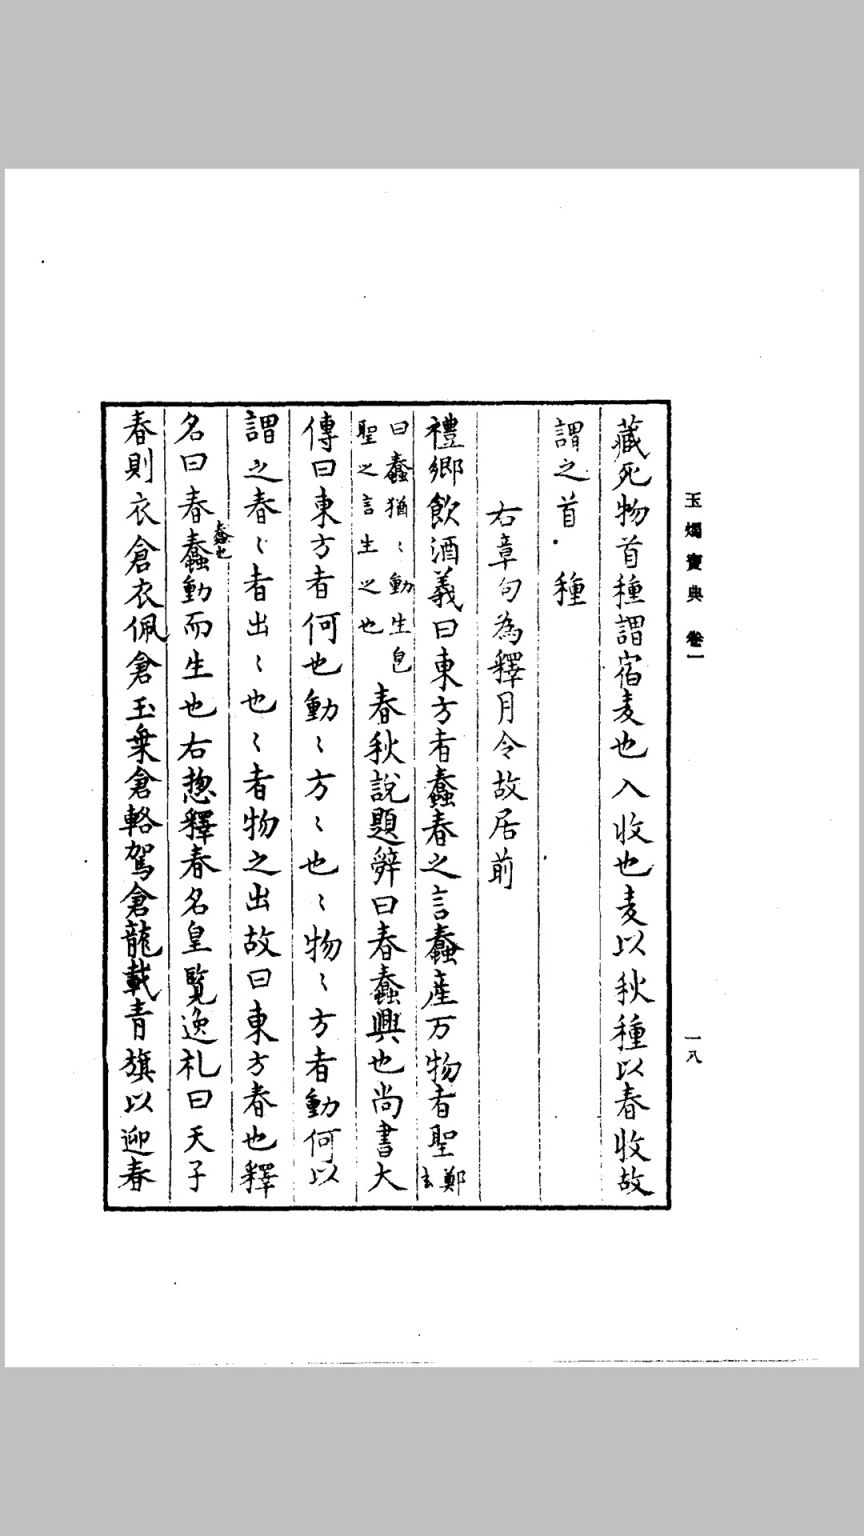 玉燭寶典 卷一
一八
藏死物首種謂宿麦也入收也麦以秋種以春收故
謂之首種
右章句為釋月令故居前
禮鄉飲酒義曰東方者蠢春之言蠢産万物者聖鄭玄
曰蠢猶〻動生皃
聖之言生之也
春秋說題辤曰春蠢興也尚書大
傳曰東方者何也動〻方〻也〻物〻方者動何以
謂之春〻者出〻也〻者物之出故曰東方春也釋
名曰春蠢動而生也右惣釋春名皇覧逸礼曰天子
蠢也
春則衣倉衣佩倉玉乗倉輅駕倉龍載青旗以迎春